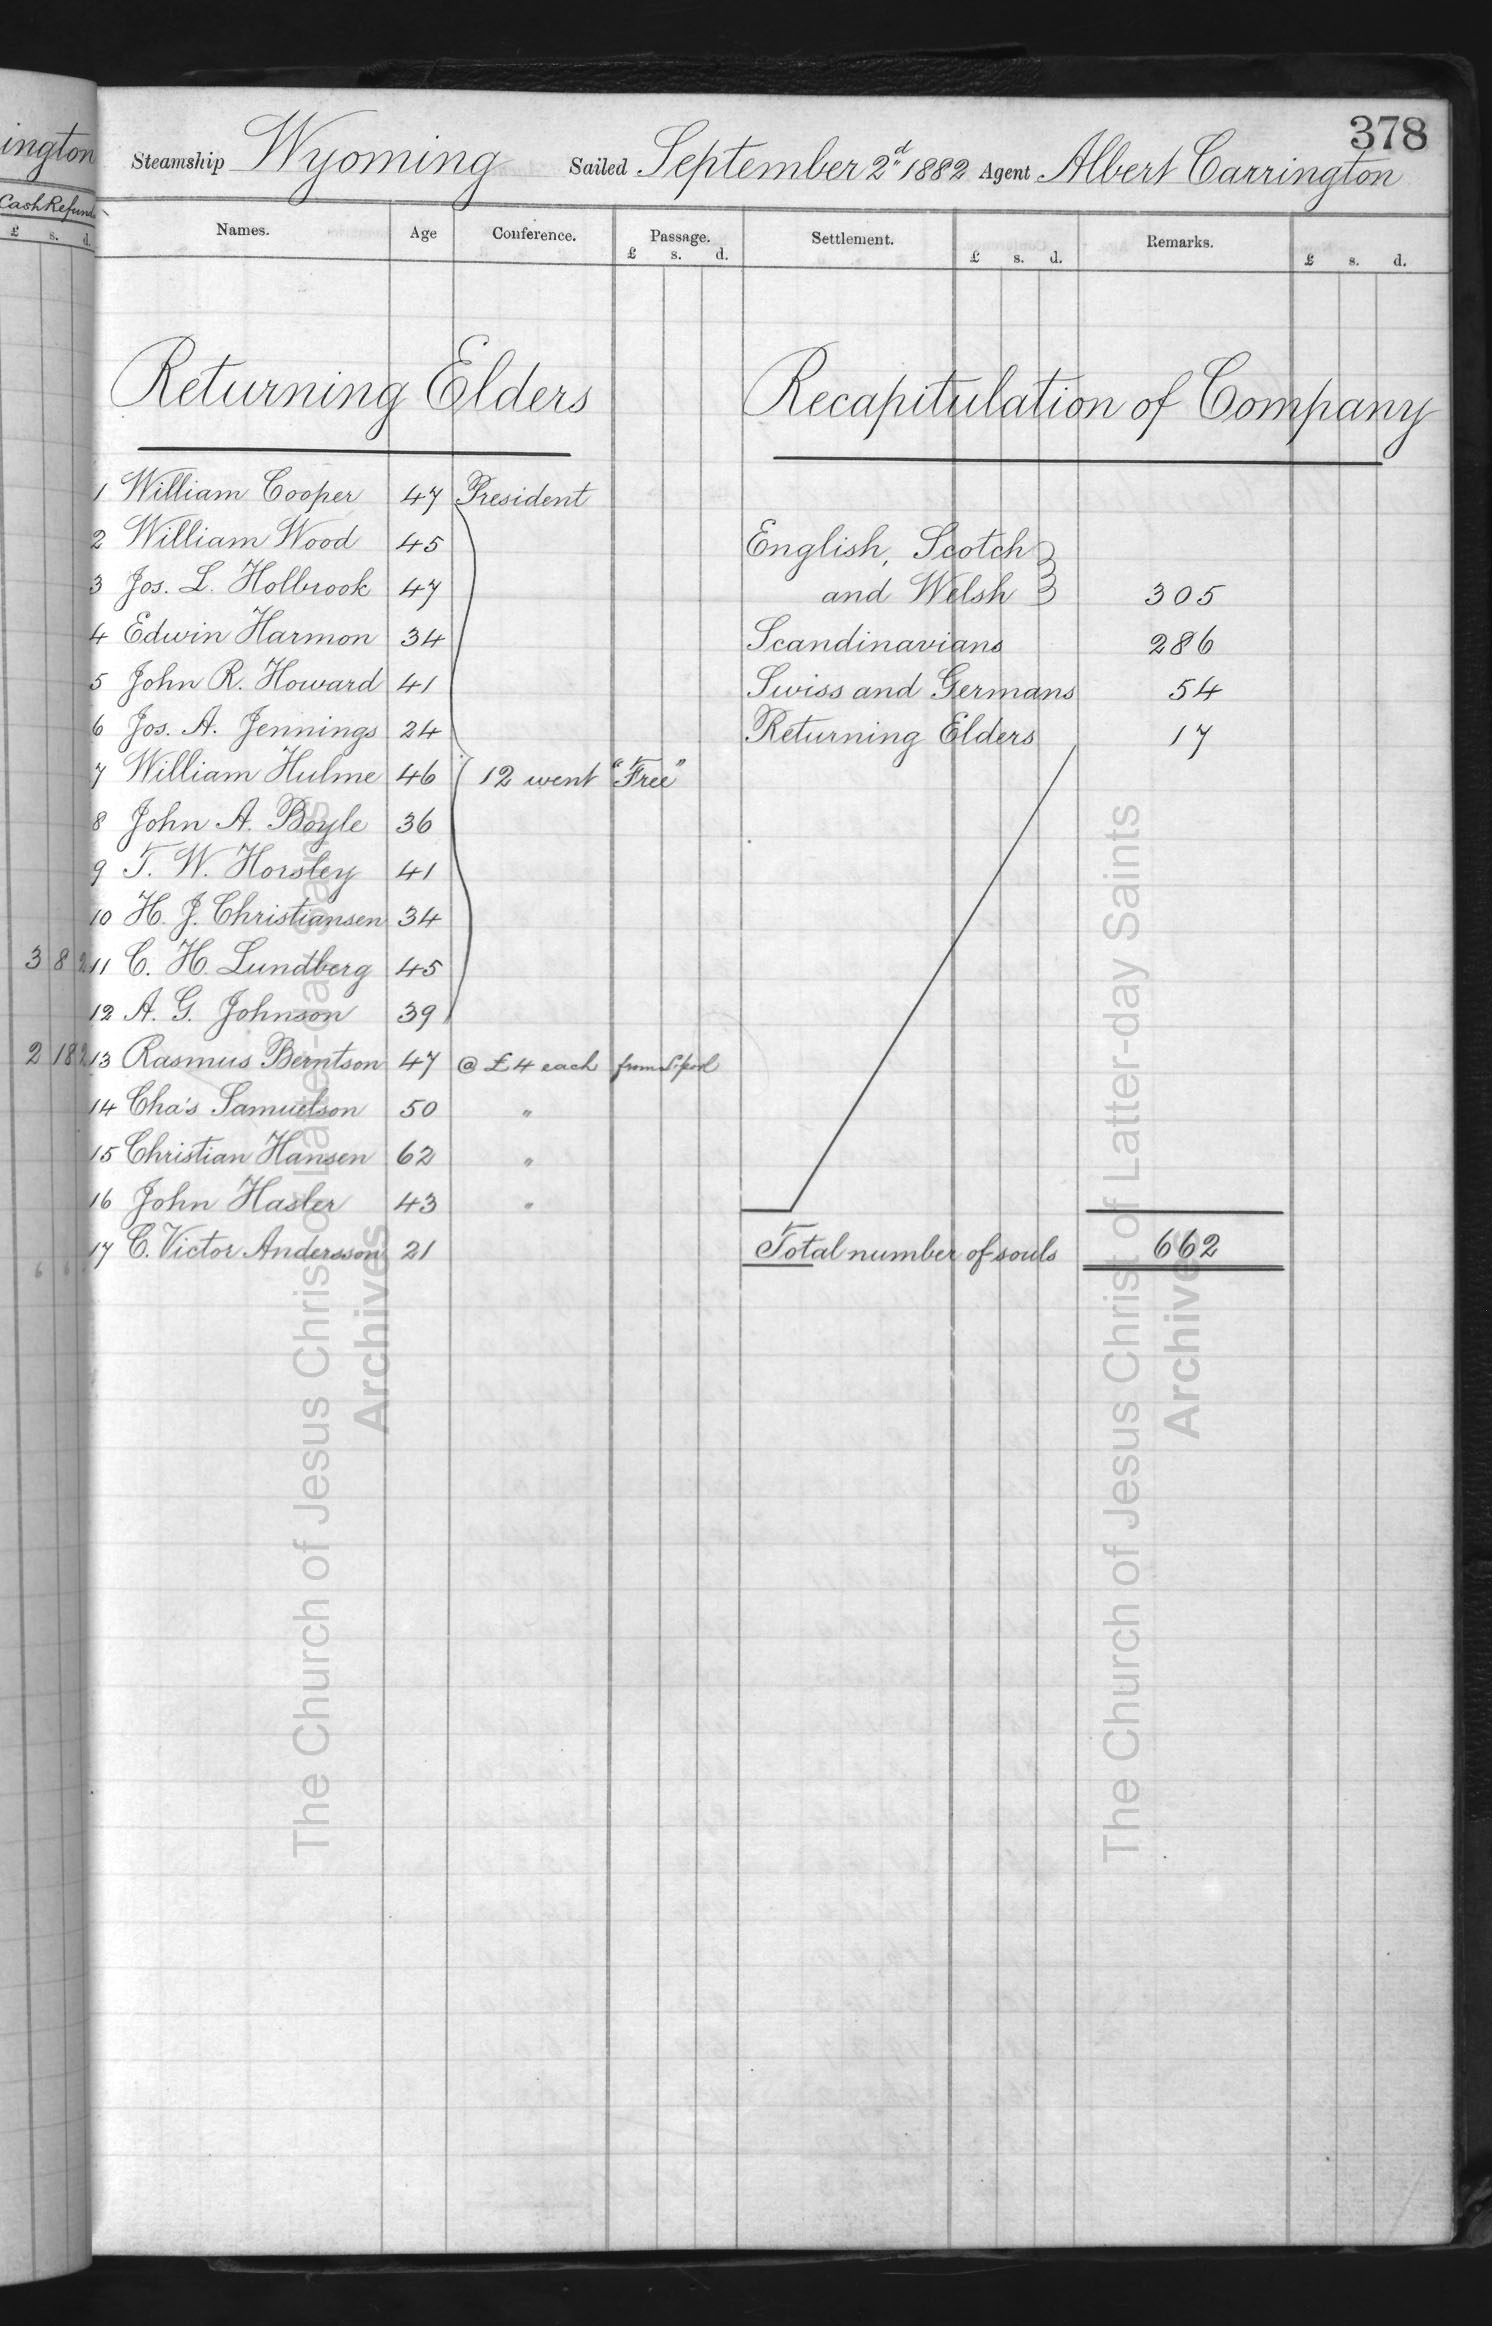 378
Steamship Wyoming Sailed September 2nd 1882 Agent Albert Carrington
ington
Cash Refund
£ s. d.
Names. Age Conference. Passage. Settlement. Remarks.
£ s. d. £ s. d. £ s. d.
Returning Elders
1 William Cooper 47 President
2 William Wood 45
3 Jos. L. Holbrook 47
4 Edwin Harmon 34
5 John R. Howard 41
6 Jos. A. Jennings 24
7 William Hulme 46 12 went "Free"
8 John A. Boyle 36
9 T. W. Horsley 41
10 H. J. Christiansen 34
3 8 2 11 C. H. Lundberg 45
12 A. G. Johnson 39
2 18 2 13 Rasmus Berntson 47 @ £4 each from L'pool
14 Cha's Samuelson 50 "
15 Christian Hansen 62 "
16 John Hasler 43 "
17 C. Victor Andersson 21
Recapitulation of Company
English, Scotch
and Welsh 305
Scandinavians 286
Swiss and Germans 54
Returning Elders 17
Total number of souls 662
The Church of Jesus Christ of Latter-day Saints
Archives
The Church of Jesus Christ of Latter-day Saints
Archives